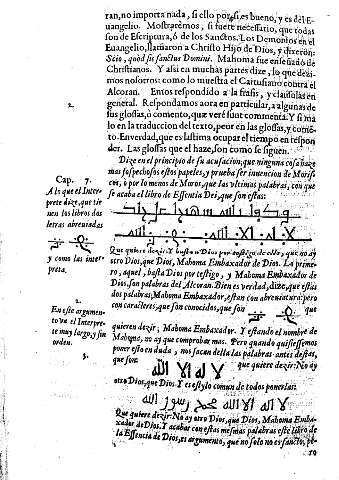 ran, no importa nada, si ello por si es bueno, y es del E-
uangelio. Mostrarèmos, si fuere necesario, que todas
son de Escriptura, ò de los Sanctos. Los Demonios en el
Euangelio, llamaron a Christo Hijo de Dios, y dixeron:
Scio, quòd sis sanctus Domini. Mahoma fue enseñado de
Christianos. Y assi en muchas partes dize, lo que dezi-
mos nosotros: como lo muestra el Cartusiano contra el
Alcoran. Entos respondido a la frasis, y clausulas en
general. Respondamos aora en particular, a algunas de
sus glossas, ò comento, que verè sunt commenta. Y si ma-
lo en la traduccion del texto, peor en las glossas, y comen-
to. En verdad, que es lastima ocupar el tiempo en respon
der. Las glossas que el haze, son como se siguen.
Dize en el principio de su acusacion; que ninguna cosa haze
mas sospechosos estos papeles, y prueba ser inuencion de Moris-
cos, ò por lo menos de Moros, que las vltimas palabras, con que
se acaba el libro de Essentia Dei, que son estas:
Que quiere dezir: Y basta Dios por testigo de ello, que no ay
otro Dios, que Dios, Mahoma Embaxador de Dios. La prime-
ro, aquel, basta Dios por testigo, y Mahoma Embaxador de
Dios, son palabras del Alcoran. Bien es verdad, dize, que estas
dos palabras, Mahoma Embaxador, estan con abreuiatura: pero
con caracteres, que son conocidos, que son
quieren dezir; Mahoma Embaxador. Y estando el nombre de
Mahoma, no ay que comprobar mas. Pero quando quisiessemos
poner esto en duda, nos sacan della las palabras antes destas,
que son: que quiere dezir: No ay
لا اله الا الله
otro Dios, que Dios. Y es estylo comun de todos ponerlas:
لا اله الا الله محمد رسول الله
Que quiere dezir: No ay otro Dios, que Dios, Mahoma Emba-
xador de Dios. Y acabar con estas mesmas palabras este libro de
la Essencia de Dios, es argumento, que no solo no es sancto, pe-
ro
2.
Cap. 7.
A lo que el Inter-
prete dize, que tie
nen los libros dos
letras abreuiadas
y como las inter-
preta.
2.
En este argumen-
to va el Interprete
muy largo, y sin
orden.
3.